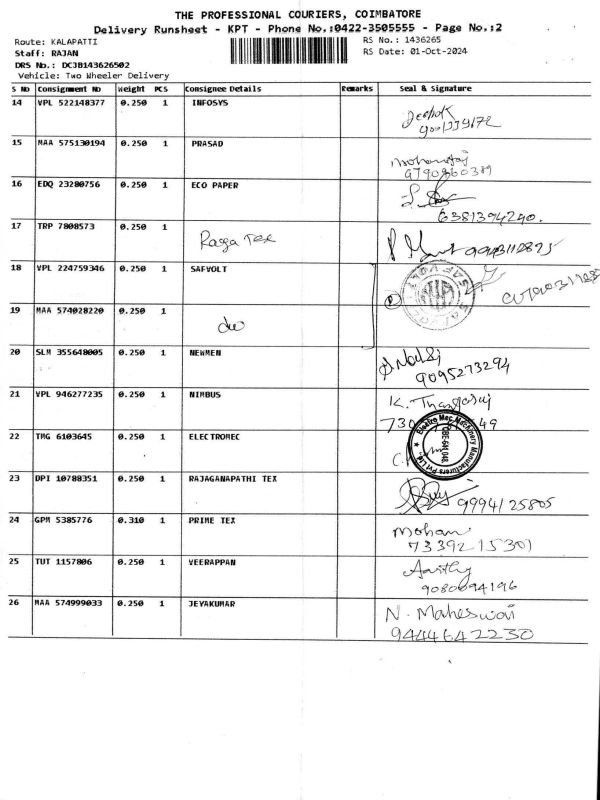 THE PROFESSIONAL COURIERS, COIMBATORE
Delivery Runsheet - KPT - Phone No.:0422-3505555 - Page No.:2
Route: KALAPATTI
RS No.: 1436265
Staff: RAJAN
RS Date: 01-Oct-2024
DRS No.: DCJB143626502
Vehicle: Two Wheeler Delivery
S No Consignment No Weight PCS Consignee Details Remarks Seal & Signature
14 VPL 522148377 0.250 1 INFOSYS
15 MAA 575130194 0.250 1 PRASAD
16 EDQ 23280756 0.250 1 ECO PAPER
6381394240.
17 TRP 7808573 0.250 1 Raga Tex
18 VPL 224759346 0.250 1 SAFVOLT
19 MAA 574028220 0.250 1
20 SLM 355648005 0.250 1 NEWMEN
9095273294
21 VPL 946277235 0.250 1 NIMBUS
K. Thangaraj
22 TMG 6103645 0.250 1 ELECTROMEC
Elektro Mec Machinery Manufacturers Pvt Ltd.
23 DPI 10788351 0.250 1 RAJAGANAPATHI TEX
9994125805
24 GPM 5385776 0.310 1 PRIME TEX
Mohan
7339215301
25 TUT 1157806 0.250 1 VEERAPPAN
Aarthy
9080094196
26 MAA 574999033 0.250 1 JEYAKUMAR
N. Maheswari
9444642230